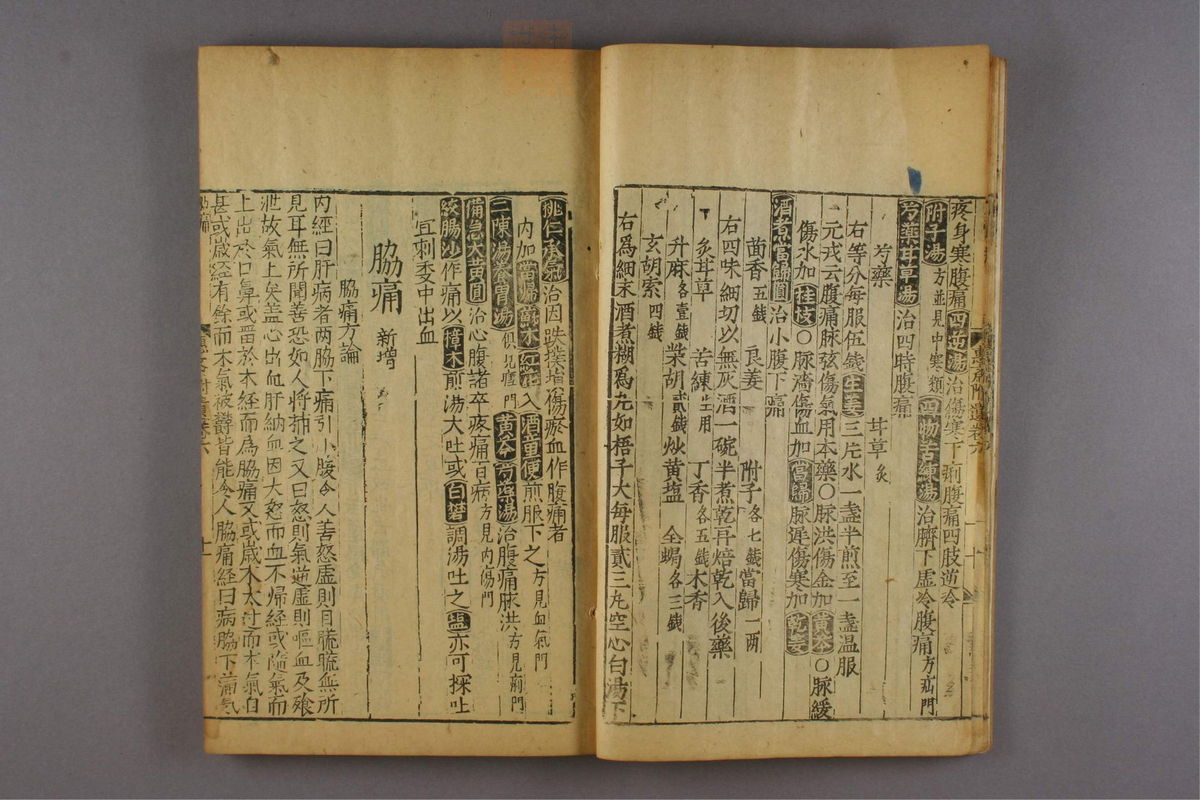 疼身寒腹痛四逆湯治傷寒下痢腹痛四肢逆冷
附子湯方並見中寒類四物苦練湯治臍下虛冷腹痛方疝門
芍藥甘草湯治四時腹痛
芍藥 甘草炙
右等分每服伍錢生姜三片水一盞半煎至一盞温服
元戎云腹痛脉弦傷氣用本藥〇脉洪傷金加黃芩〇脉緩
傷水加桂枝〇脉濇傷血加當歸〇脉遲傷寒加乾姜
酒煮當歸圓治小腹下痛
茴香五錢 良姜 附子各七錢 當歸一两
右四味細切以無灰酒一碗半煮乾再焙乾入後藥
炙甘草 苦練生用 丁香各五錢 木香
升麻各壹錢 柴胡貳錢 炒黃塩 全蝎各三錢
玄胡索四錢
右爲細末酒煮糊爲丸如梧子大每服貳三丸空心白湯下
桃仁承氣治因跌撲損傷瘀血作腹痛者
內加當歸蘇木紅花入酒童便煎服下之方見血氣門
二陳湯 湯俱見 門黃芩芍藥湯治腹痛脉洪方見痢門
備急大黃圓治心腹諸卒疼痛百病方見內傷門
絞腸沙作痛以樟木煎湯大吐或白礬調湯吐之塩亦可探吐
宜刺委中出血
脇痛 新增
脇痛方論
內經曰肝病者两脇下痛引小腹令人善怒虛則目䀮䀮無所
見耳無所聞善恐如人將捕之又曰怒則氣逆虛則嘔血及飱
泄故氣上矣盖心出血肝納血因大怒而血不歸經或隨氣而
上出於口鼻或畱於本經而為脇痛又或歲木太过而木氣自
甚或歲金有餘而木氣被欝皆能令人脇痛經曰病脇下滿氣